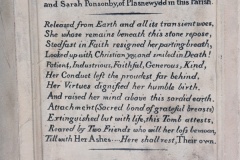 and Sarah Ponsonby, of Plasnewydd in this Parish.
Released from Earth and all its transient woes,
She whose remains beneath this stone repose,
Stedfast in Faith resigned her parting breath,
Looked up with Christian joy, and smiled in Death!
Patient, Industrious, Faithful, Generous, Kind,
Her Conduct left the proudest far behind,
Her Virtues dignified her humble birth,
And raised her mind above this sordid earth.
Attachment (Sacred bond of grateful breasts)
Extinguished but with life, this Tomb attests,
Reared by Two Friends who will her loss bemoan,
Till with Her Ashes...Here shall rest, Their own.